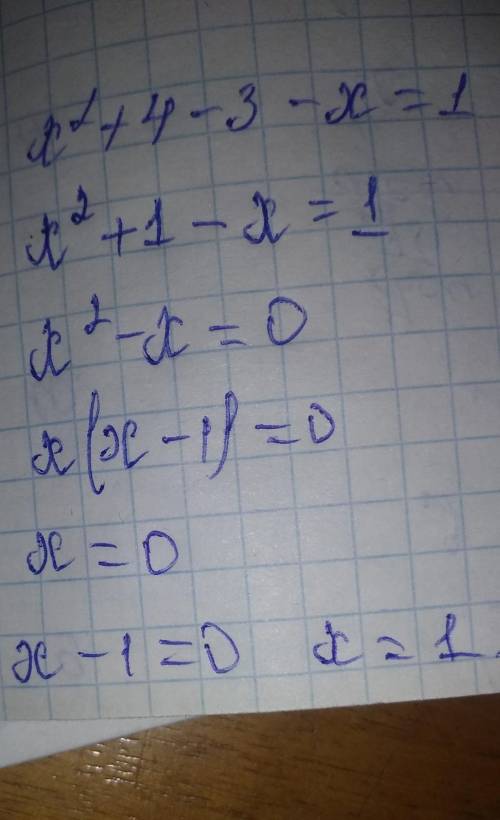 x² + 4 - 3 - x = 1
x² + 1 - x = 1
x² - x = 0
x(x - 1) = 0
x = 0
x - 1 = 0 x = 1